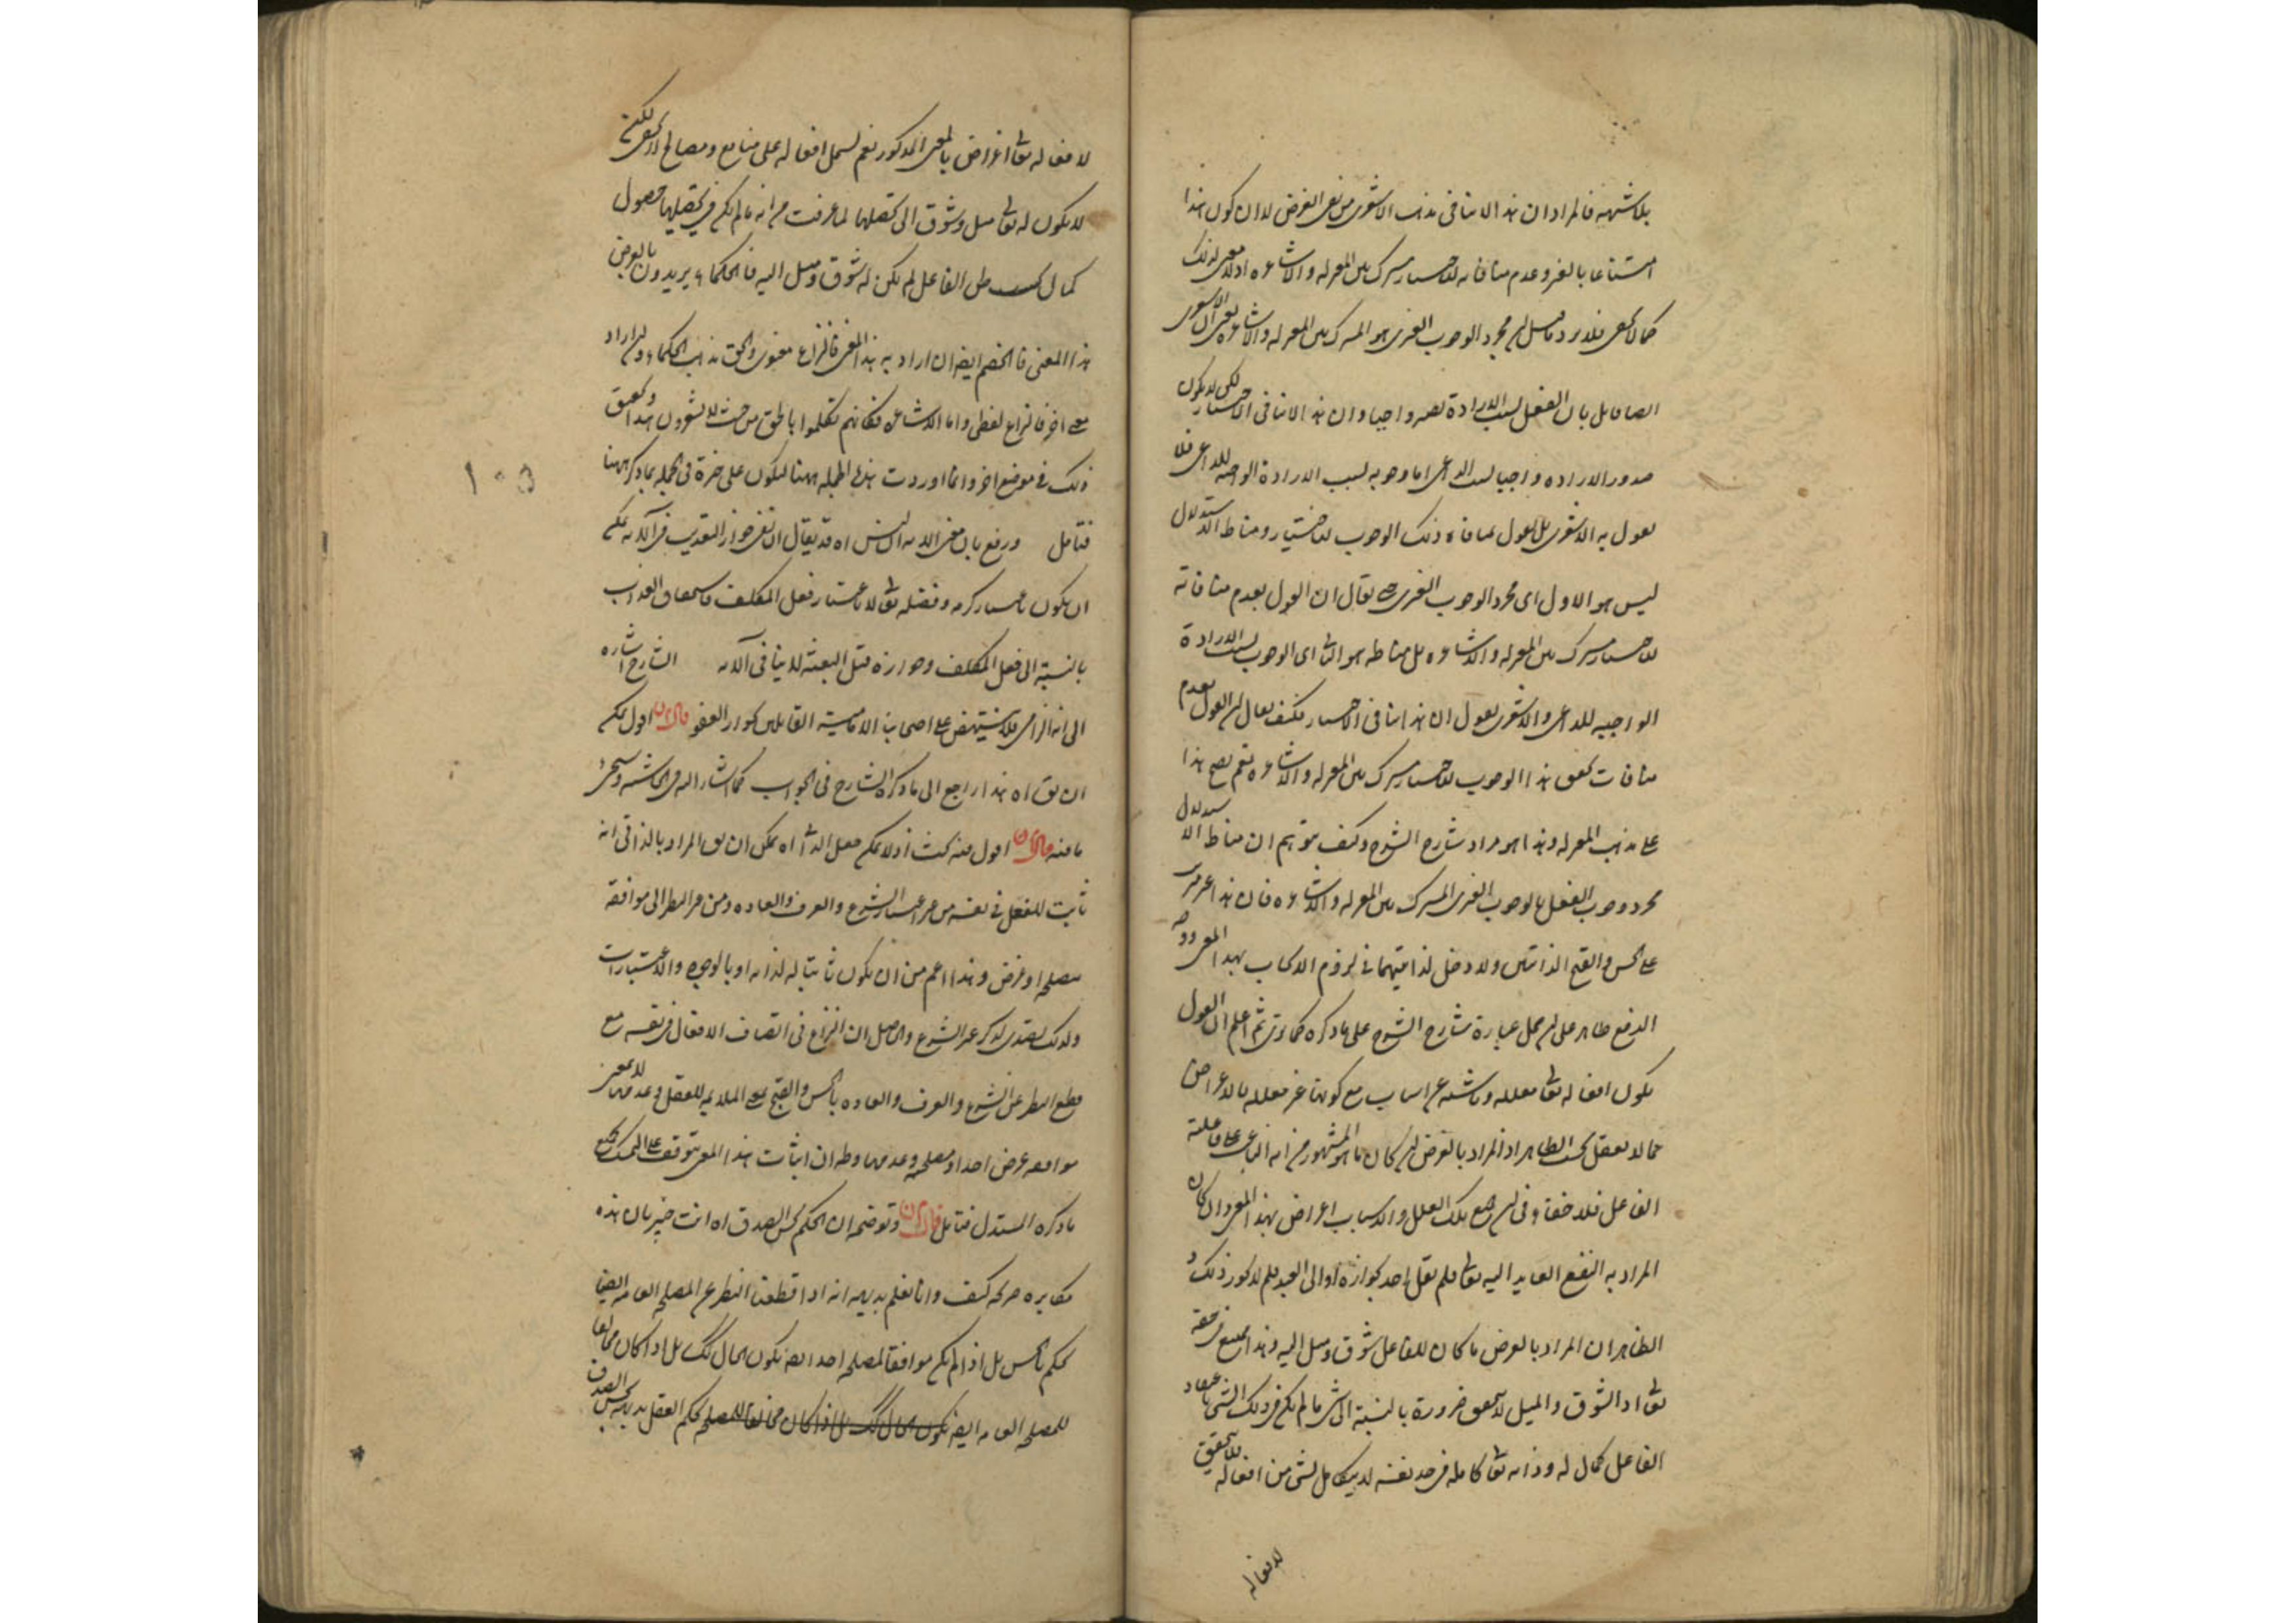 بلا شبهة فالمراد ان هذا لا ينافي مذهب الاشعري من نفي الغرض لا ان كون هذا
امتناعا بالغير وعدم منافاته للاختيار مشترك بين المعتزلة والاشاعرة اذ لا معنى لذلك
كما لا يخفى فلا يرد ما قيل ان مجرد الوجوب الغيري هو المشترك بين المعتزلة والاشاعرة يعني ان الاشعري
ايضا قايل بان الفعل بسبب الارادة يصير واجبا وان هذا لا ينافي الاختيار لكن لا يكون
صدور الارادة واجبا بسبب الداعي اما وجوبه بسبب الارادة الواجبة للداعي فلا
يقول به الاشعري بل يقول بمنافاة ذلك الوجوب للاختيار ومناط الاستدلال
ليس هو الاول اى مجرد الوجوب الغيري حتى يقال ان القول بعدم منافاته
للاختيار مشترك بين المعتزلة والاشاعرة بل مناطه هو الثاني اى الوجوب بسبب الارادة
الواجبة للداعي والاشعري يقول ان هذا ينافي الاختيار فكيف يقال ان القول بعدم
منافات هذا الوجوب للاختيار مشترك بين المعتزلة والاشاعرة نعم يصح هذا
على مذهب المعتزلة وهذا هو مراد شارح الشرح وكيف يتوهم ان مناط الاستدلال
مجرد وجوب الفعل بالوجوب الغيري المشترك بين المعتزلة والاشاعرة فان هذا
على الحسن والقبح الذاتيين ولا دخل لذاتيتهما في لزوم الايجاب بهذا المعنى
الدفع ظاهر على حمل عبارة شارح الشرح على ما ذكره كما ترى ثم اعلم ان القول
بكون افعاله تعالى معللة وناشئة عن اسباب مع كونها غير معللة بالاغراض
مما لا يعقل بحسب الظاهر اذ المراد بالغرض ان كان ما هو المشهور من انه الباعث على فاعلية
الفاعل فلا خفاء في ان جميع تلك العلل والاسباب اغراض بهذا المعنى وان كان
المراد به النفع العايد اليه تعالى فلم يقل احد بجوازه او الى العبد فلم لا يجوز ذلك و
الظاهر ان المراد بالغرض ما كان للفاعل شوق وميل اليه وهذا ممتنع في حقه
تعالى اذ الشوق والميل لا يتحقق ضرورة بالنسبة الى شئ ما لم يكن في ذلك الشئ باعتقاد
الفاعل كمال له وذاته تعالى كاملة في حد نفسه لا يتكامل بشئ من افعاله فلا تحقيق
لافعاله
لافعاله تعالى اغراض بالمعنى المذكور نعم يشتمل افعاله على منافع ومصالح
لا يكون له تعالى ميل وشوق الى تحصيلها لما عرفت من انه ما لم يكن في تحصيلها حصول
كمال بحسب ظن الفاعل لم يكن له شوق وميل اليه فالحكماء يريدون بالغرض
هذا المعنى فالخصم ايضا ان اراد به هذا المعنى فالنزاع معنوي والحق مذهب الحكماء وان اراد
معنى اخر فالنزاع لفظي واما الاشاعرة فكانهم تكلموا بالحق من حيث لا يشعرون هذا وتحقيق
ذلك في موضع اخر وانما اوردت هذه الجملة ههنا لتكون على خبرة في الجملة بما ذكر ههنا
فتامل ودفع بان معنى الاية ليس اه قد يقال ان نفى جواز التعذيب في الاية يمكن
ان يكون باعتبار كرمه وفضله تعالى لا باعتبار فعل المكلف فاستحقاق العذاب
بالنسبة الى فعل المكلف وجوازه قبل البعثة لا ينافي الاية الشارح اشاره
الى انه الزامي فلا ينتهض على اصحابنا الامامية القايلين بجواز العفو قال اقول يمكن
ان يق اه هذا راجع الى ما ذكره الشارح في الجواب كما اشار اليه في الحاشية وستجئ
ما فيه قال اقول فيه بحث اذ لا يمكن اه يمكن ان يق المراد بالذاتي انه
ثابت للفعل في نفسه من غير اعتبار الشرع والعرف والعادة ومن غير النظر الى موافقة
مصلحة او غرض وهذا اعم من ان يكون ثابتا له لذاته او بالوجوه والاعتبارات
ولذلك تصدى لذكر غير الشرع والاصل ان النزاع في اتصاف الافعال في نفسه مع
قطع النظر عن الشرع والعرف والعادة بالحسن والقبح بمعنى الملايمة للعقل وعدمها لا بمعنى
موافقة غرض احد او مصلحة وعدمها وظ ان اثبات هذا المعنى يتوقف على
ما ذكره المستدل فتامل قال وتوضيحه ان الحكم بحسن الصدق اه انت خبير بان هذه
مكابرة صريحة كيف وانا نعلم بديهة انه اذا قطعنا النظر عن المصلحة العامة ايضا
نحكم بالحسن بل اذا لم يكن موافقا لمصلحة احد ايضا يكون الحال كك بل اذا كان مخالفا
للمصلحة العامة ايضا يكون الحال كك بل اذا كان مخالفا للمصلحة يحكم العقل بديهة بحسن الصدق
١٠٥